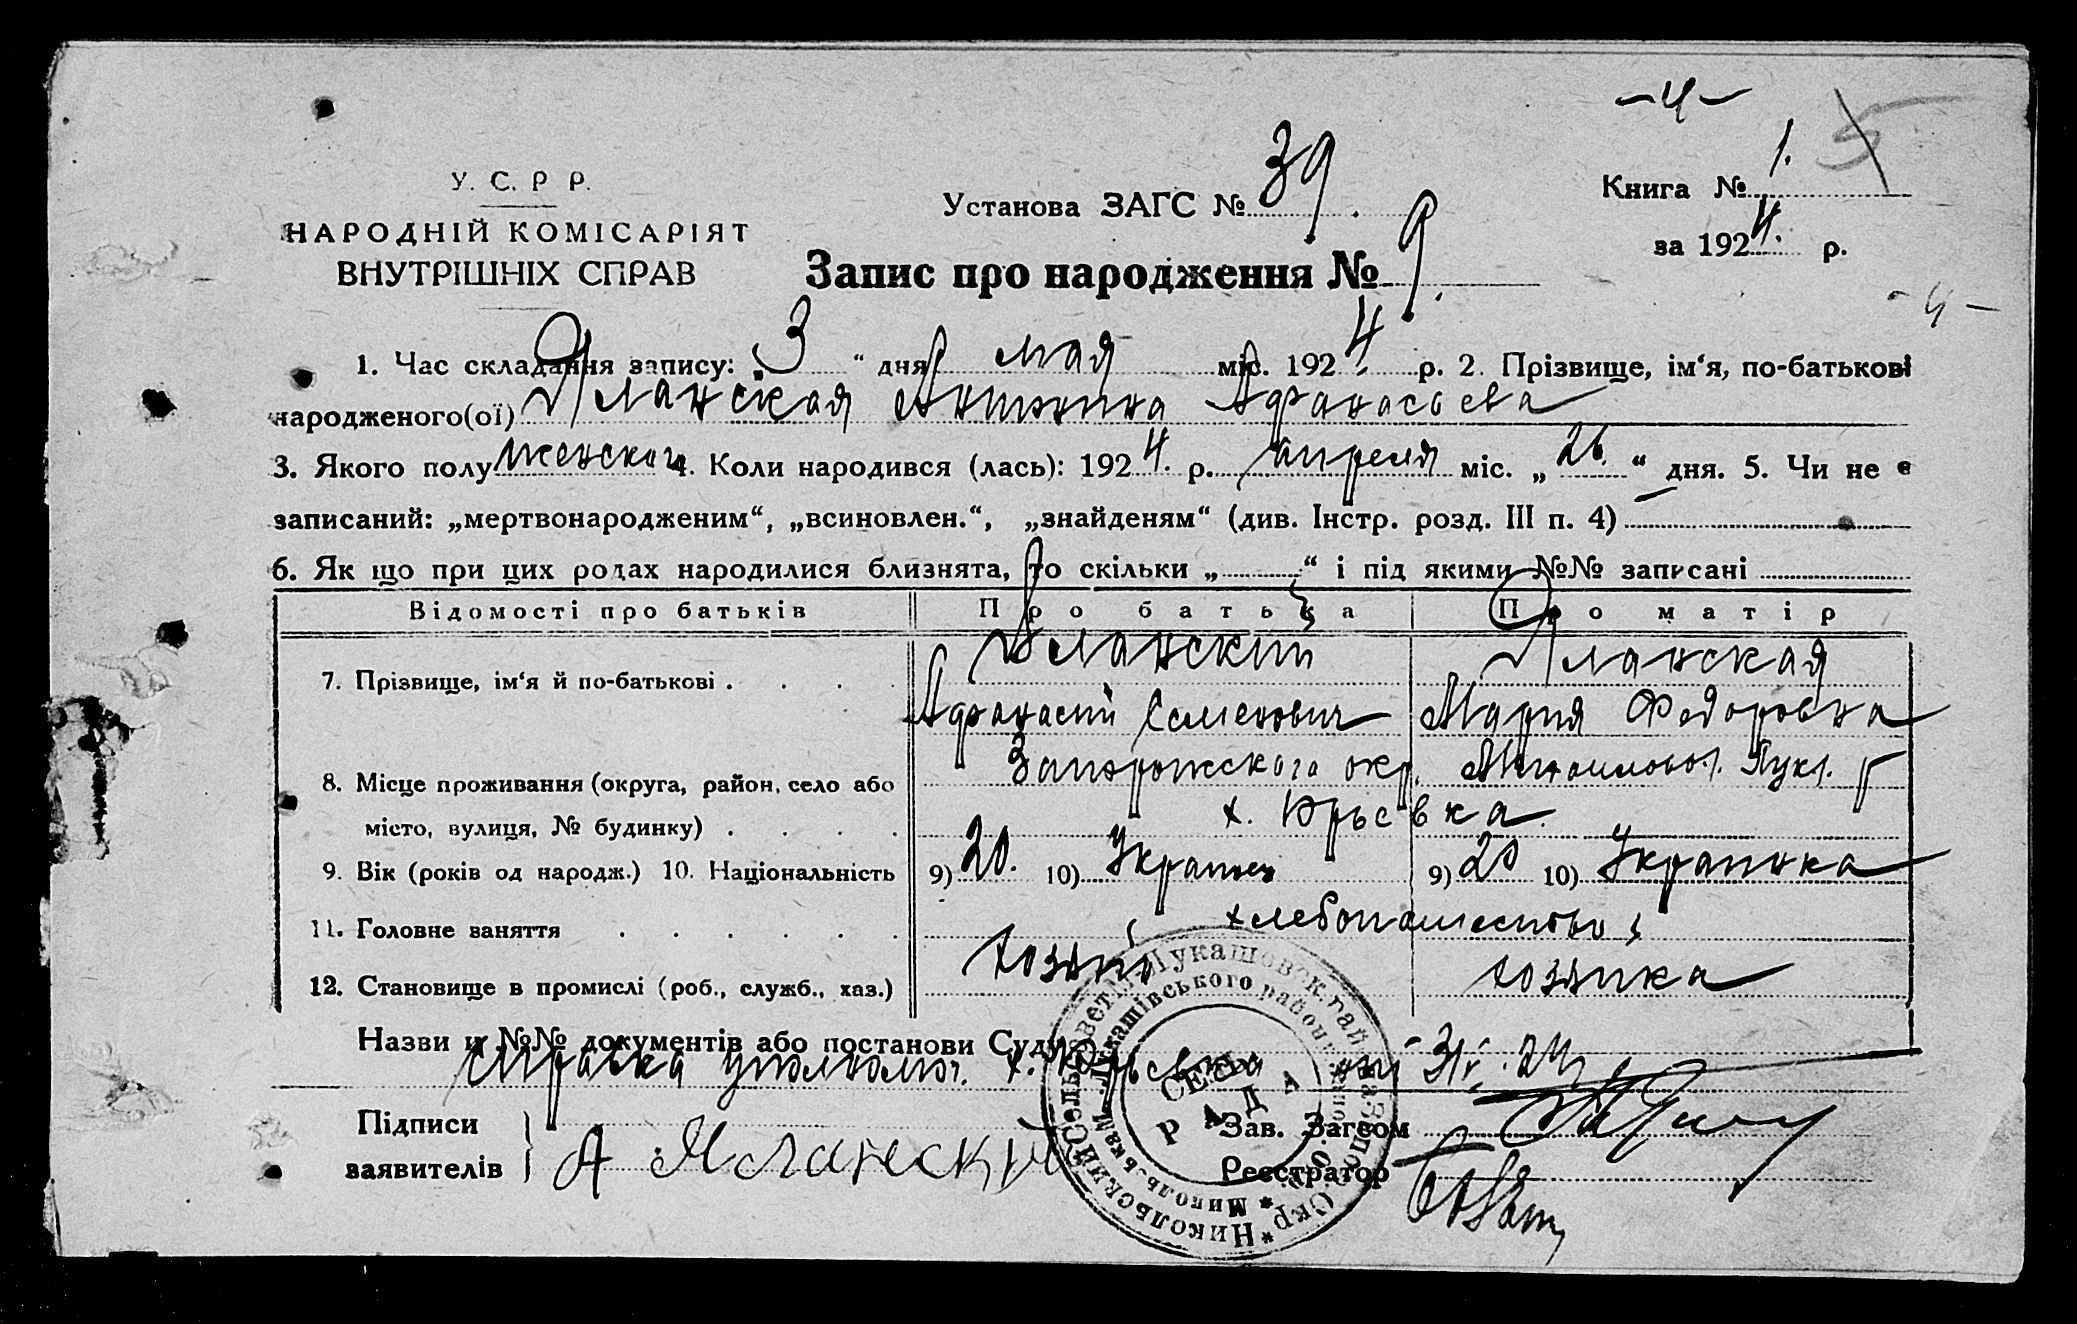 -4-
5
У. С. Р Р.
НАРОДНІЙ КОМІСАРІЯТ
ВНУТРІШНІХ СПРАВ
Установа ЗАГС № 39.
Книга № 1.
за 1924. р.
Запис про народження № 9.
- 4 -
1. Час складання запису: „3“ дня мая міс. 1924. р. 2. Прізвище, ім‘я, по-батькові
народженого(ої) Яланская Антонина Афанасьева
3. Якого полу женского 4. Коли народився (лась): 1924. р. апреля міс. „26.“ дня. 5. Чи не є
записаний: „мертвонародженим“, „всиновлен.“, „знайденям“ (див. Інстр. розд. III п. 4) —
6. Як що при цих родах народилися близнята, то скільки „ “ і під якими №№ записані
Відомості про батьків Про батька Про матір
7. Прізвище, ім‘я й по-батькові . . . . Яланский Яланская
Афанасий Семенович Мария Федоровна
8. Місце проживання (округа, район, село або Запорожского окр.
місто, вулиця, № будинку) . . . . х. Юрьевка
9. Вік (років од народж.) 10. Національність 9) 20. 10) Украинец 9) 20 10) Украинка
11. Головне заняття . . . . . . хлебопашество
12. Становище в промислі (роб., служб., хаз.) хозяин хозяйка
Назви и №№ документів або постанови Суду
Справка уполномоч. х. Юрьевка от 3/V. 24
Підписи
заявителів } А Яланский
Зав. Загсом
Реєстратор
СЕЛЬ
РАДА